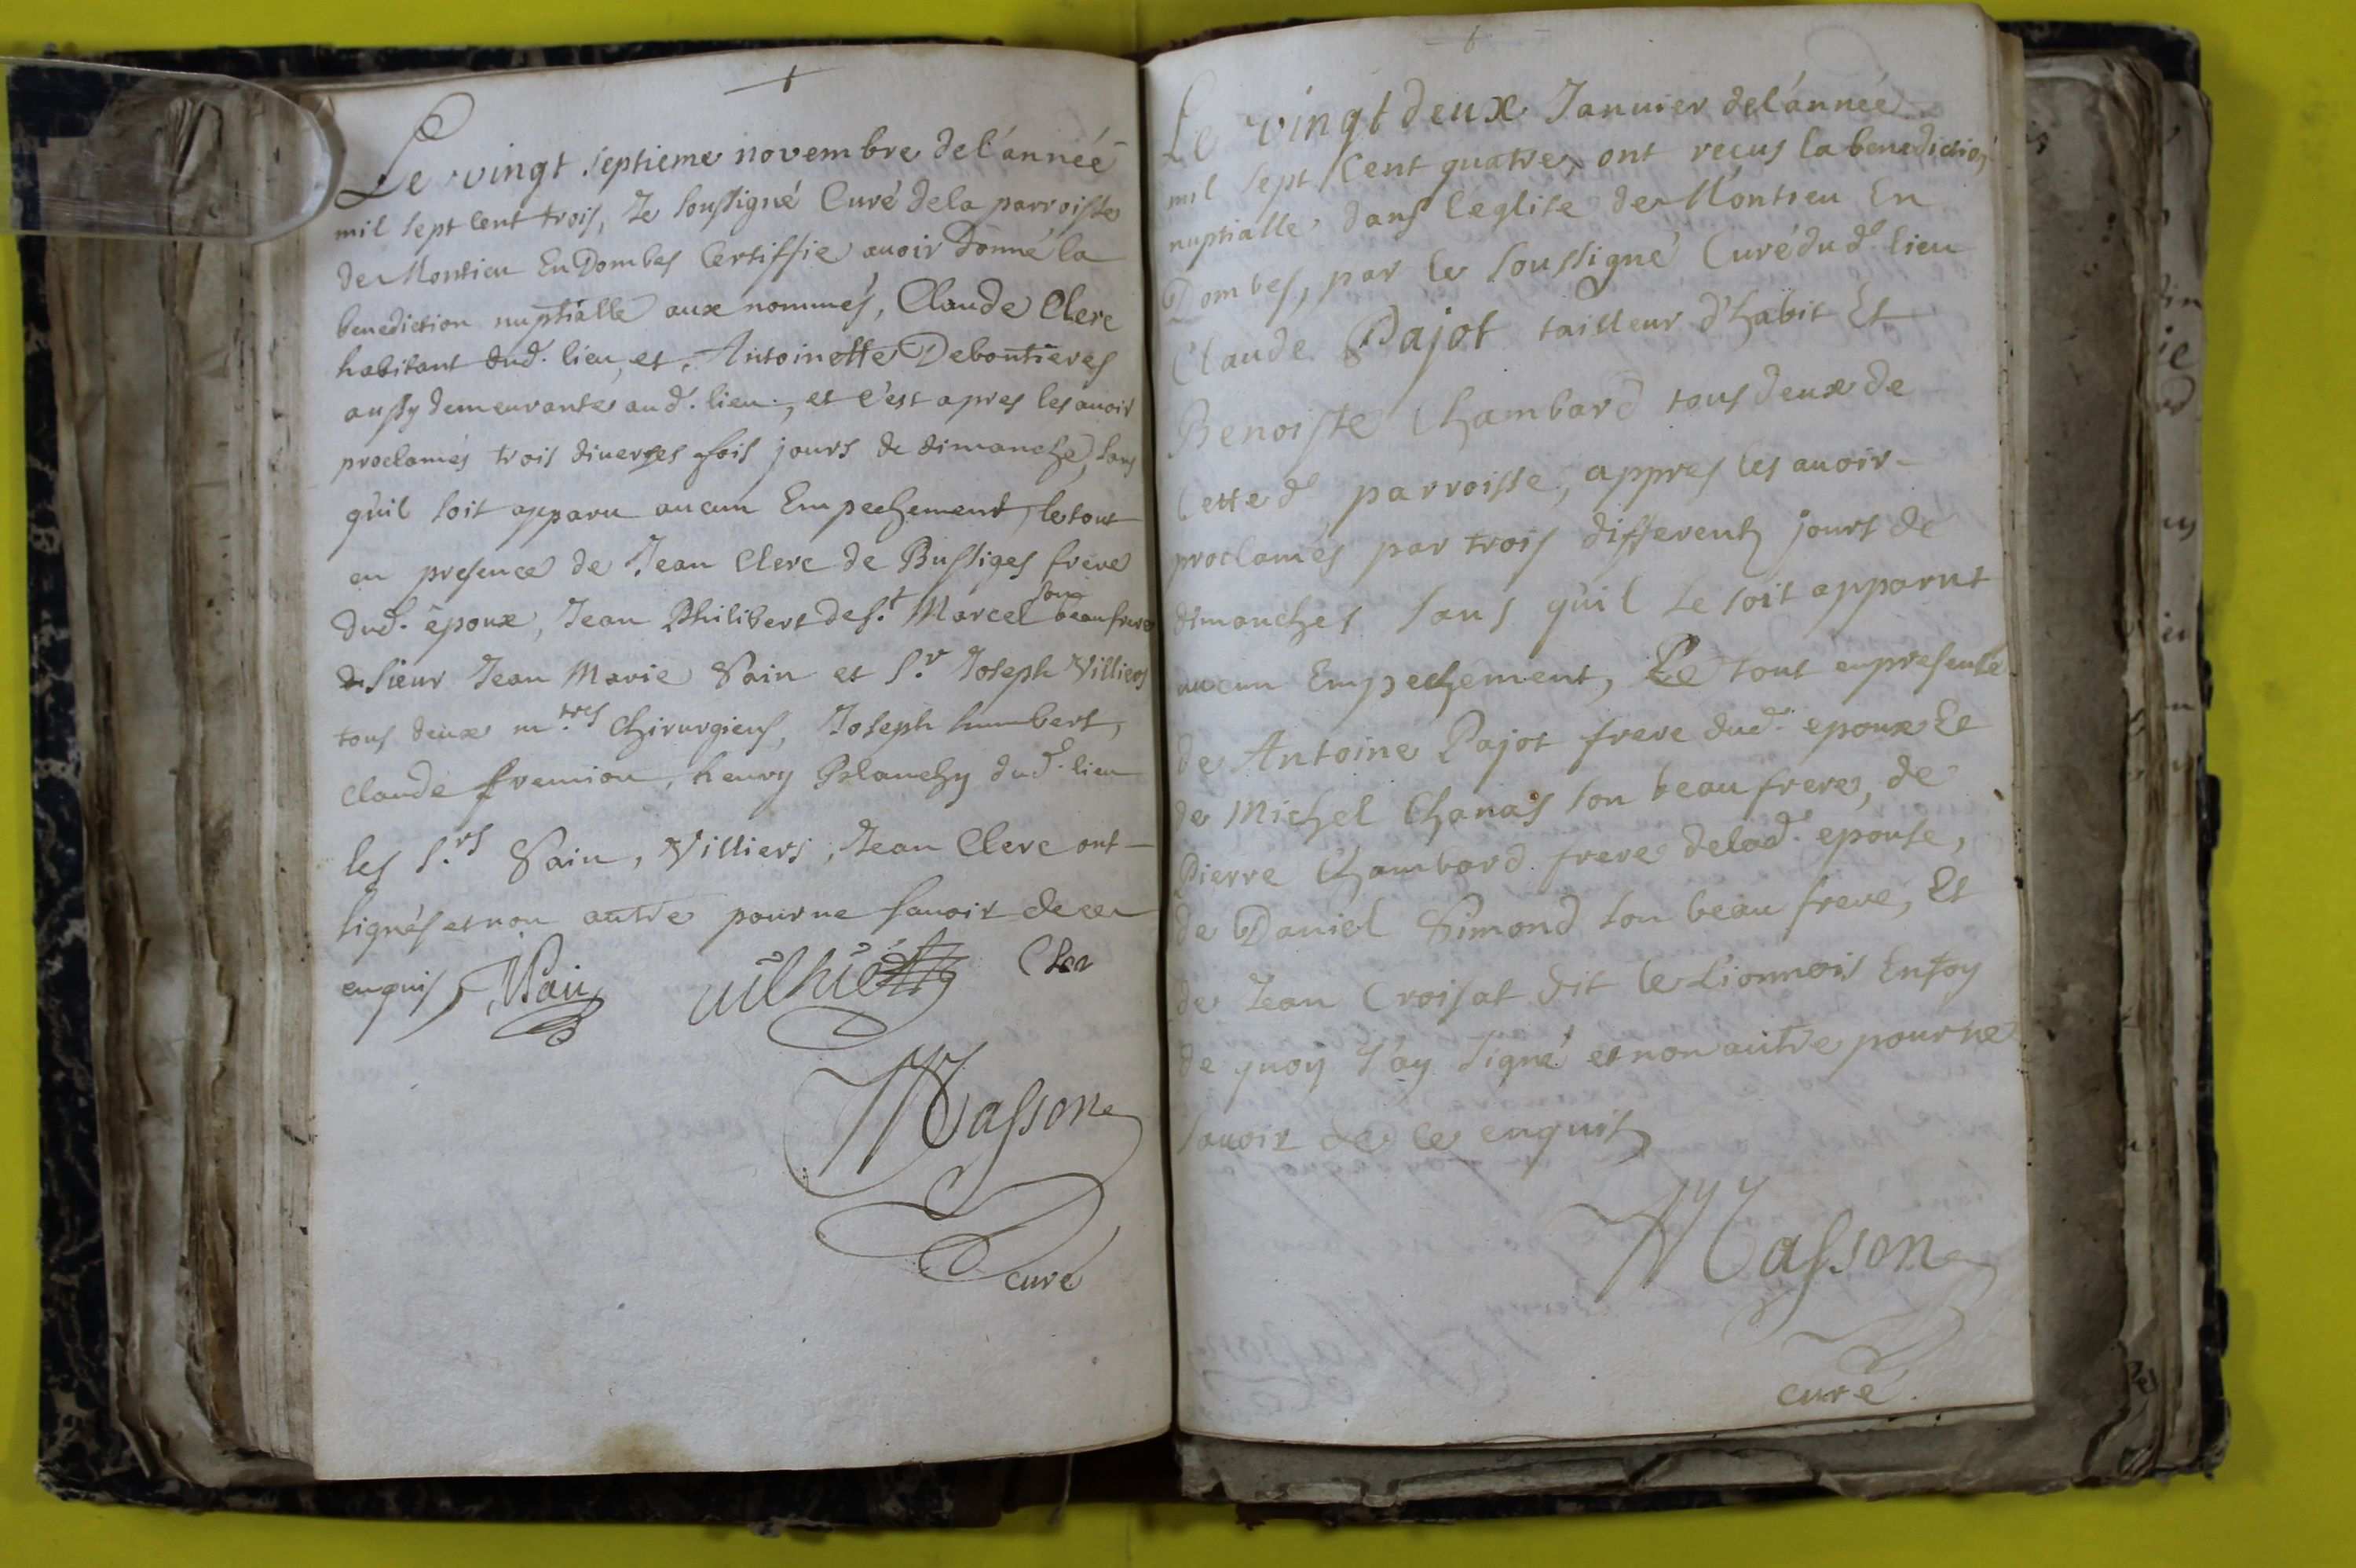 Le vingt septieme novembre de l'année
mil sept cent trois, Je soussigné Curé de la parroisse
de Montieu En Dombes Certiffie avoir donné la
benediction nuptialle aux nommés, Claude Clerc
habitant dud. lieu, et Antoinette Deboutieres
aussy demeurante aud. lieu, et c'est apres les avoir
proclamés trois diverses fois jours de dimanche, sans
qu'il soit apparu aucun Empechement, le tout
en presence de Jean Clerc de Bussiges frere
dud. époux, Jean Philibert de St. Marcel son beaufrere
sieur Jean Marie Vain et Sr. Joseph Villiers
tous deux mtres Chirurgiens, Joseph humbert,
Claude fremion, henry Blanchy dud. lieu
les Srs Vain, Villiers, Jean Clerc ont
signés et non autre pour ne savoir de ce
enquis, Vain Cler
Masson
curé
Le vingt deux Januier de l'année
mil sept Cent quatre, ont recus la benediction
nuptialle dans l'eglise de Montieu En
Dombes, par le soussigné Curé dud. lieu
Claude Pajot tailleur d'habit Et
Benoiste Chambard tous deux de
Cette de parroisse, appres les avoir
proclamés par trois differents jours de
dimanches sans qu'il se soit apparut
aucun Empechement, Le tout en presence
de Antoine Pajot frere dud. epoux Et
de Michel Chanas son beau frere, de
Pierre Chambard frere de lad. epouse,
de Daniel Simond son beau frere, Et
de Jean Croisat dit le Lionnois En foy
de quoy j'ay signé et non autre pour ne
savoir de ce enquits
Masson
curé